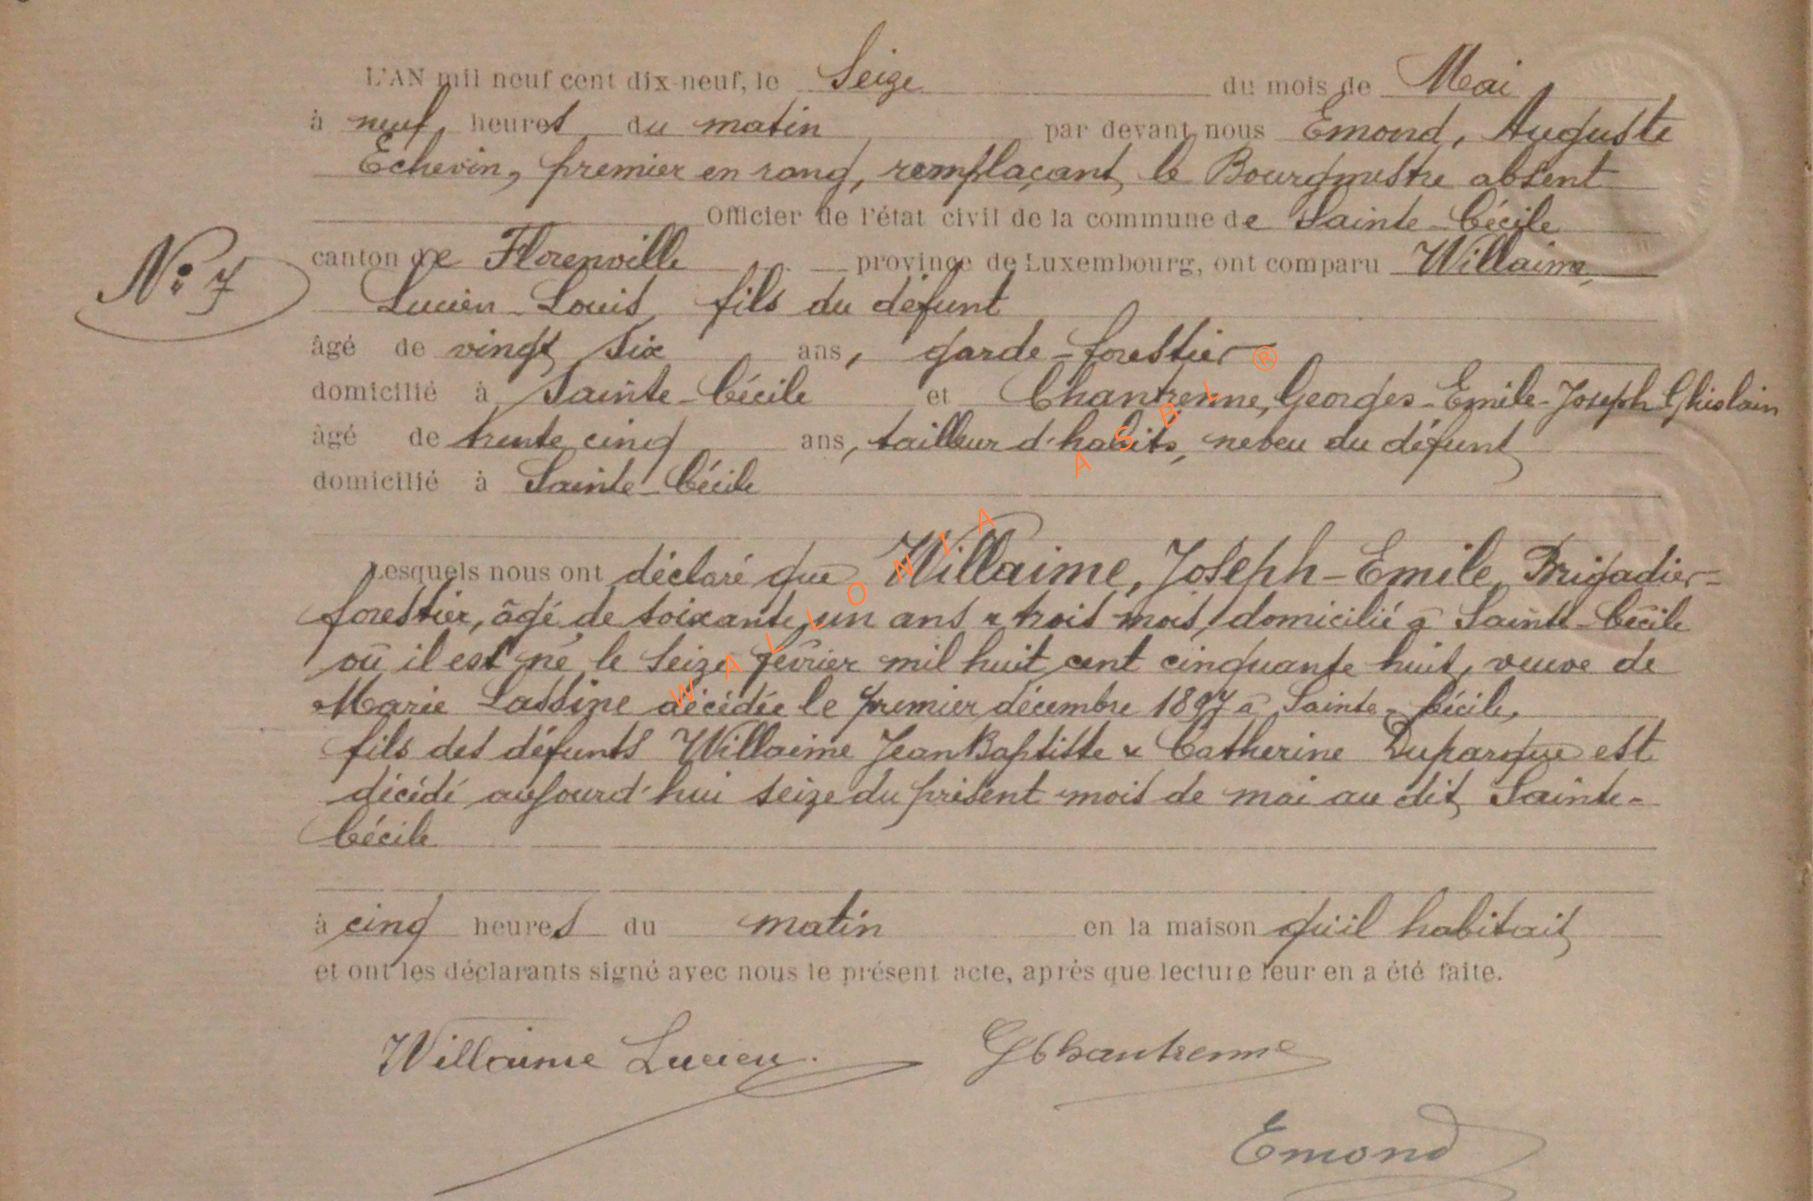 L'AN mil neuf cent dix-neuf, le Seize du mois de Mai
à neuf heures du matin par devant nous Emond, Auguste
Echevin, premier en rang, remplaçant le Bourgmestre absent
Officier de l'état civil de la commune de Sainte-Cécile
N° 7
canton de Florenville province de Luxembourg, ont comparu Willaime,
Lucien-Louis fils du défunt
âgé de vingt six ans, garde-forestier
domicilié à Sainte-Cécile et Chantrenne, Georges-Emile-Joseph Ghislain
âgé de trente cinq ans, tailleur d'habits, neveu du défunt
domicilié à Sainte-Cécile
Lesquels nous ont déclaré que Willaime, Joseph-Emile, Brigadier-
forestier, âgé de soixante un ans & trois mois, domicilié à Sainte-Cécile
où il est né le seize février mil huit cent cinquante huit, veuve de
Marie Lassine décédée le premier décembre 1897 à Sainte-Cécile,
fils des défunts Willaime Jean Baptiste & Catherine Duparque est
décédé aujourd'hui seize du présent mois de mai au dit Sainte-
Cécile
à cinq heures du matin en la maison qu'il habitait
et ont les déclarants signé avec nous le présent acte, après que lecture leur en a été faite.
Willaime Lucien. GChantrenne
Emond
WALLONIA ASBL ®